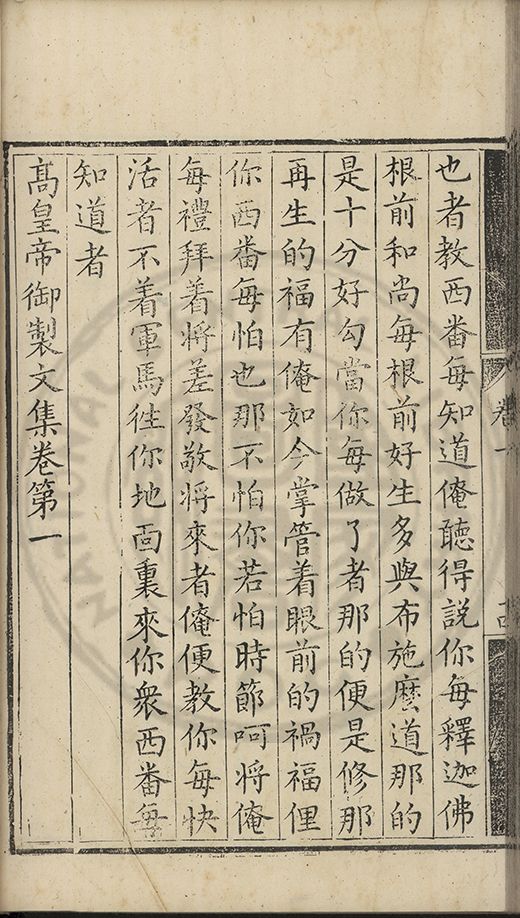 也者教西番每知道俺聽得說你每釋迦佛
根前和尚每根前好生多與布施麼道那的
是十分好勾當你每做了者那的便是修那
再生的福有俺如今掌管着眼前的禍福俚
你西番每怕也那不怕你若怕時節呵將俺
每禮拜着將差發敬將來者俺便教你每快
活者不着軍馬徃你地面裏來你衆西番每
知道者
髙皇帝御製文集卷第一
卷一